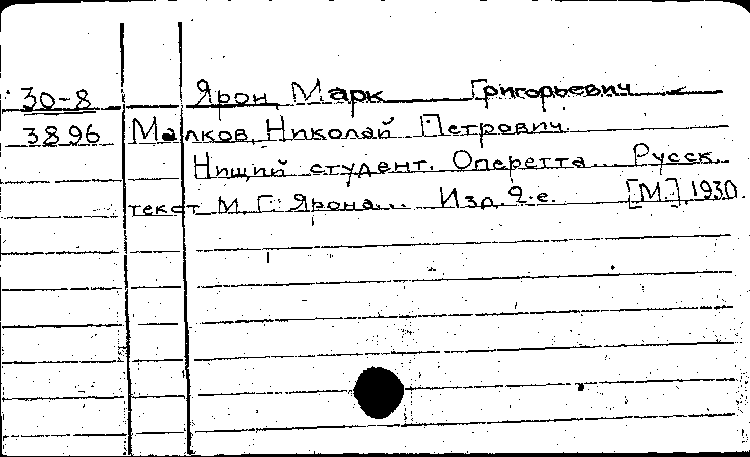 30-8 Ярон, Марк Григорьевич
3896 Малков, Николай Петрович.
Нищий студент. Оперетта... Русск.
текст М. Г. Ярона... Изд. 2-е. [М.], 1930.